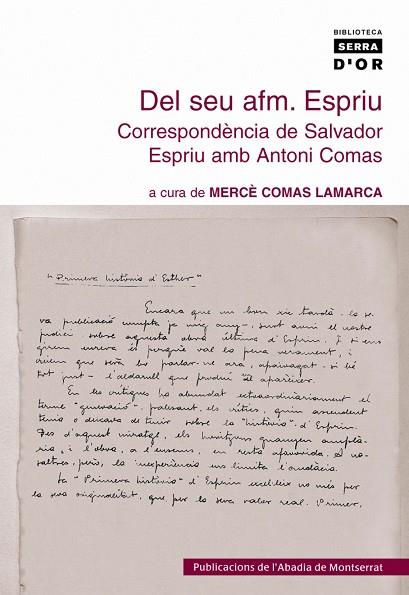 BIBLIOTECA
SERRA
D'OR
Del seu afm. Espriu
Correspondència de Salvador
Espriu amb Antoni Comas
a cura de MERCÈ COMAS LAMARCA
"Primera història d'Esther"
Encara que un bon xic tardà - la se-
va publicació compta ja mig any -, surt avui el nostre
judici sobre aquesta obra última d'Espriu. I si ens
hi és perquè val la pena verament, i
creiem que serà bo parlar-ne ara, apaivagat - si bé
tot just - l'aldarull que produí al aparèixer.
En les crítiques ha abundat extraordinàriament el
terme "
tenia o deixava de tenir sobre la "història" d'Espriu.
Des d'aquest miratge, els
ria, i l'obra, a l'ensems, en resta afavorida. A no-
saltres, però, la inexperiència ens limita l'audàcia.
La "Primera història" d'Espriu excel·leix no més per
la seva originalitat, que per la seva valor real. Primer,
Publicacions de l'Abadia de Montserrat